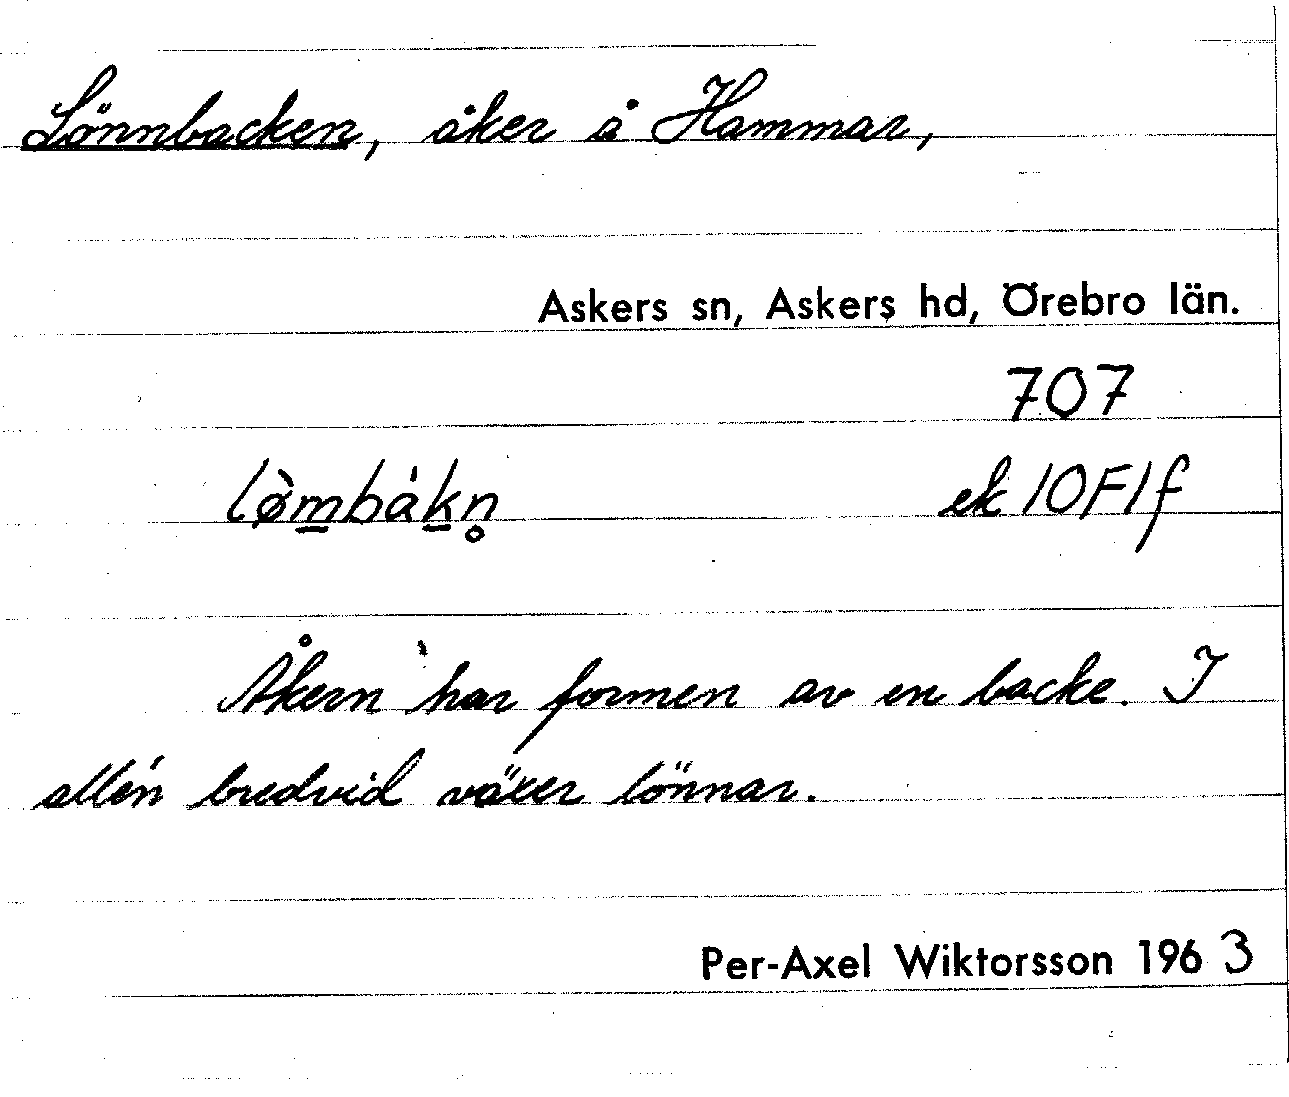 Lönnbacken, åker å Hammar,
Askers sn, Askers hd, Örebro län.
707
lø̀m̲bák̲n̥ ek 10F1f
Åkern har formen av en backe. I
allén bredvid växer lönnar.
Per-Axel Wiktorsson 1963